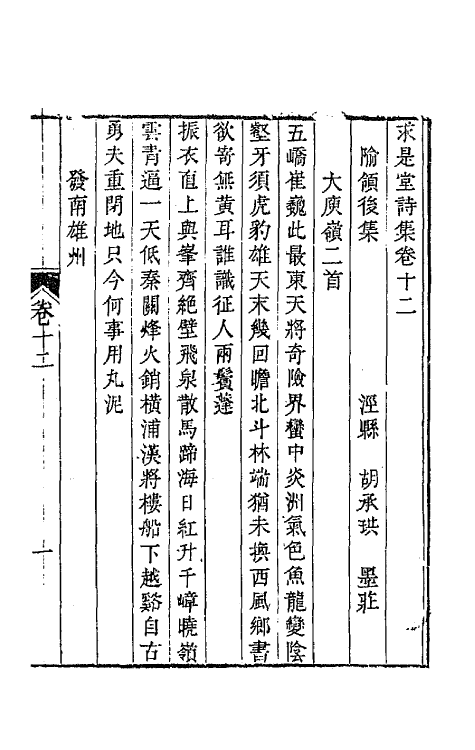 求是堂詩集卷十二
隃領後集　涇縣　胡承珙　墨莊
大庾嶺二首
五嶠崔巍此最東天將奇險界蠻中炎洲氣色魚龍變陰
壑牙須虎豹雄天末幾回瞻北斗林端猶未換西風鄉書
欲寄無黃耳誰識征人兩鬢蓬
振衣直上與峯齊絕壁飛泉散馬蹄海日紅升千嶂曉嶺
雲青逼一天低秦關烽火銷橫浦漢將樓船下越谿自古
勇夫重閉地只今何事用丸泥
發南雄州
卷十二
一